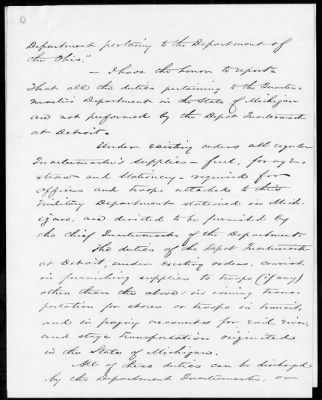 Department pertaining to the Department of
the Ohio."
— I have the honor to report—
That all the duties pertaining to the Quarter-
master's Department in the State of Michigan
are not performed by the Depot Quartermaster
at Detroit.
Under existing orders all regular
Quartermaster's supplies – fuel, forage
straw and Stationery – required for
officers and troops attached to this
Military Department stationed in Mich-
igan, are directed to be furnished by
the Chief Quartermaster of the Department.
The duties of the Depot Quartermaster
at Detroit, under existing orders, consist
in furnishing supplies to troops (if any)
other than the above: in issuing trans-
portation for stores or troops in transit,
and in paying accounts for rail, river,
and stage transportation originated
in the State of Michigan.
All of these duties can be discharged
by the Department Quartermaster, or